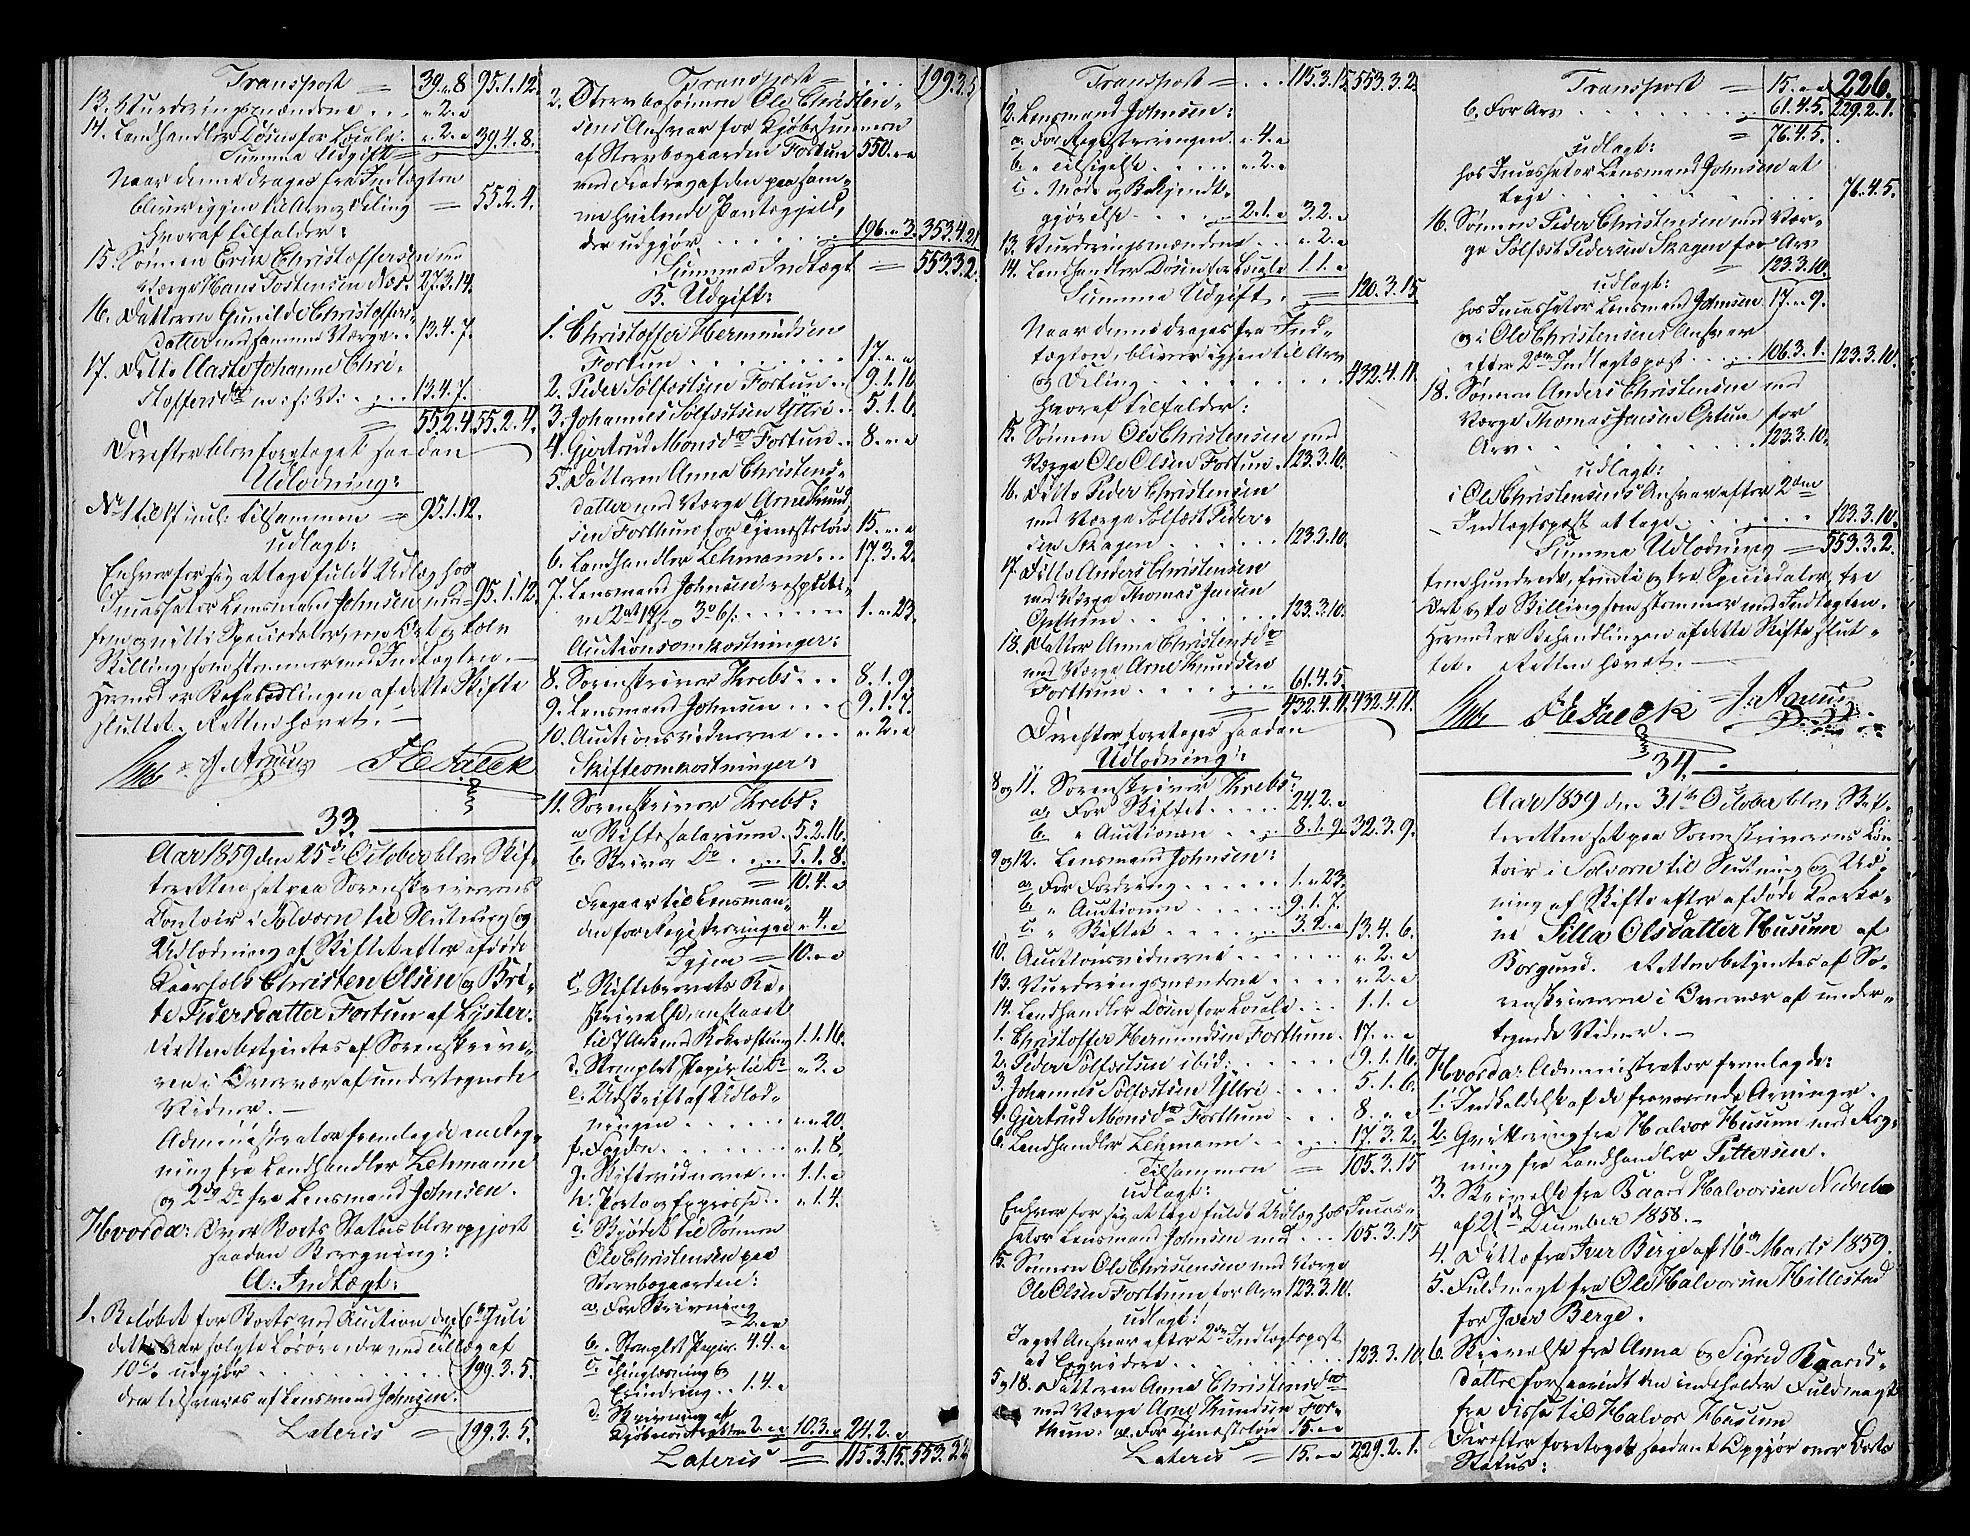 Transport = 39. „ 8 95.1.12.
13. Vurderingsmændene . . . „ 2. „
14. Landhandler Døsen for Locale „ 2. „ 39.4.8.
Summa Udgift =
Naar denne drages fra Indtægten
bliver igjen til Arv og Deling = 55.2.4.
hvoraf tilfalder:
15. Sønnen Erik Christoffersen med
Værge Hans Tostensen Næs: 27.3.14.
16. Datteren Gunilde Christoffers-
datter med samme Værge . . 13.4.7.
17. Ditto Aaste Johanne Chri-
stoffersdr m: s: V: . . . 13.4.7.
= 55.2.4. 55.2.4.
Derefter blev foretaget saadan
Udlodning:
No 1 til 17 incl: tilsammen = 95.1.12.
udlagt:
Enhver for sig at tage fuldt Udlæg hos
Incassator Lensmand Johnsen med = 95.1.12.
fem og nitti Speciedaler, een Ort og tolv
Skilling, som stemmer med Indtægten. —
Hermed er Behandlingen af dette Skifte
sluttet. Retten hævet. —
33.
Aar 1859 den 25de October blev Skif-
teretten sat paa Sorenskriverens
Contoir i Solvorn til Slutning og
Udlodning af Skiftet efter afdøde
Kaarfolk Christen Olsen og Bri-
te Pedersdatter Fortun af Lyster.
Retten betjentes af Sorenskrive-
ren i Overvær af undertegnede
Vidner. —
Administrator fremlagde en Reg-
ning fra Landhandler Lehmann
og 2de Do fra Lensmand Johnsen.
Hvorda: Over Boets Status blev opgjort
saadan Beregning:
A: Indtægt:
1. Beløbet for Boets ved Auction den 6te Juli
dette Aar solgte Løsøre med Tillæg af
10% udgjør . . . 199.3.5.
der tilsvares af Lensmand Johnsen:
Lateris = 199.3.5.
Transport = . . . 199.3.5
2. Stervbosønnen Ole Christen-
sens Ansvar for Kjøbesummen
af Stervbogaarden Fortun 550. „ „
med Fradrag af den paa sam-
me hvilende Pantegjeld,
der udgjør . . . . . . 196. „ 3. 353.4.21
Summa Indtægt = 553.3.2.
B. Udgift:
1. Christoffer Hermundsen
Fortun . . . . . . . . 17. „ „
2. Peder Solfestsen Fortun . . 9.1.16
3. Johannes Solfestsen Yttri . . 5.1.6.
4. Gjertrud Monsdr Fortun . . 8. „ „
5. Datteren Anna Christens-
datter med Værge Arne Knud-
sen Forthun for Tjenesteløn 15. „ „
6. Landhandler Lehmann . . 17.3.2.
7. Lensmand Johnsen respecti-
ve . . . . . . 1. „ 23.
Auctionsomkostninger:
8. Sorenskriver Krebs . . . 8.1.9.
9. Lensmand Johnsen . . . 9.1.7.
10. Auctionsvidnerne . . . „ 2. „
Skifteomkostninger:
11. Sorenskriver Krebs:
a. Skiftesalarium . 5.2.16.
b. Skriver Do . . . 5.1.8.
= 10.4. „
Fragaar til Lensman-
den for Registreringen „ 4. „
Igjen = 10. „ „
c. Skiftebrevets Be-
skrivelse,
1.1.16.
d. Stemplet Papir til Do „ 3. „
e. Udskrift af Udlod-
ningen . . . . . „ „ 20.
f. Fogden . . . . . „ 1.8.
g. Skiftevidnerne . . 1.1. „
h. Porto og Expresse . „ 1.4.
i. Skjødet til Sønnen
Ole Christensen paa
Stervbogaarden:
a. For Skrivning
2. „ „
b. Stemplet Papir 4.4. „
c. Tinglæsning og
. . 1.4. „
d. Skrivning af
Kjøbecontracten 2. „ „ 10.3. „ 24.2. „
Lateris = 115.3.15. 553.3.2.
Transport = . . . 115.3.15. 553.3.2.
12. Lensmand Johnsen:
a. For Registreringen „ 4. „
b. „ Tilsigelse . . . „ 2. „
c. „ Møde og Bekjendt-
gjørelse . . . . 2.1. „ 3.2. „
13. Vurderingsmændene . . . „ 2. „
14. Landhandler Døsen for Locale 1.1. „
Summa Udgift . = 120.3.15
Naar denne drages fra Ind-
tægten, bliver igjen til Arv
og Deling . . . . . . . . 432.4.11
hvoraf tilfalder:
15. Sønnen Ole Christensen med
Værge Ole Olsen Fortun . 123.3.10.
16. Ditto Peder Christensen
med Værge Solfæst Peder-
sen Skagen . . . . 123.3.10.
17. Ditto Anders Christensen
med Værge Thomas Jensen
Optun . . . . . . 123.3.10.
18. Datter Anna Christensdr
med Værge Arne Knudsen
Forthun . . . . . . 61.4.5.
= 432.4.11. 432.4.11.
Derefter foretoges saadan
Udlodning:
8 og 11. Sorenskriver Krebs:
a. For Skiftet . . . 24.2. „
b. „ Auctionen . . . 8.1.9. 32.3.9.
9 og 12. Lensmand Johnsen:
a. For Fordring . . . 1. „ 23.
b. „ Auctionen . . . 9.1.7.
c. „ Skiftet . . . 3.2. „ 13.4.6.
10. Auctionsvidnerne . . . „ 2. „
13. Vurderingsmændene . . . „ 2. „
14. Landhandler Døsen for Locale . . 1.1. „
1. Christoffer Hermundsen Forthun . 17. „ „
2. Peder Solfæstsen ibid: . . . 9.1.16.
3. Johannes Solfæstsen Yttri . . . 5.1.6.
4. Gjertrud Monsdr Forthun . . . 8. „ „
6. Landhandler Lehmann . . . 17.3.2.
Tilsammen = 105.3.15
udlagt:
Enhver for sig at tage fuldt Udlæg hos Incas-
sator Lensmand Johnsen med . . . 105.3.15
15. Sønnen Ole Christensen med Værge
Ole Olsen Forthun for Arv 123.3.10.
udlagt:
I eget Ansvar efter 2den Indtægtspost
at beregne . . . . . . 123.3.10.
5 og 18. Datteren Anna Christensdr
med Værge Arne Knudsen For-
thun: a. For Tjenesteløn 15. „ „
Lateris = 15. „ „ 229.2.1.
226.
Transport = 15. „ „
b. For Arv . . . . . 61.4.5. 229.2.1.
= 76.4.5.
udlagt:
hos Incassator Lensmand Johnsen at
tage . . . . . . 76.4.5.
16. Sønnen Peder Christensen med Vær-
ge Solfæst Pedersen Skagen for Arv
123.3.10.
udlagt:
hos Incassator Lensmand Johnsen 17. „ 9.
og i Ole Christensens Ansvar
efter 2den Indtægtspost . . . 106.3.1. 123.3.10.
18. Sønnen Anders Christensen med
Værge Thomas Jensen Optun for
Arv . . . . . . 123.3.10.
udlagt:
i Ole Christensens Ansvar efter 2den
Indtægtspost at tage . . . . 123.3.10.
Summa Udlodning = 553.3.2.
fem hundrede, femti og tre Speciedaler, tre
Ort og to Skilling som stemmer med Indtægten.
Hermed er Behandlingen af dette Skifte slut-
tet. Retten hævet. —
34.
Aar 1859 den 31te October blev Skif-
teretten sat paa Sorenskriverens Con-
toir i Solvorn til Slutning og Ud-
ning af Skifte efter afdøde Kaarko-
ne Silla Olsdatter Husum af
Borgund. Retten betjentes af So-
renskriveren i Overvær af under-
tegnede Vidner. —
Hvorda: Administrator fremlagde:
1. Indkaldelse af de fraværende Arvinger.
2. Qvittering fra Halvor Husum med Reg-
ning fra Landhandler Pettersen.
3. Skrivelse fra Baard Halvorsen
af 21de December 1858. —
4. Ditto fra Iver Berge af 16de Marts 1859.
5. Fuldmagt fra Ole Halvorsen Hillestad
for Iver Berge.
6. Skrivelse fra Anna og Sigrid Baards-
døttre forsaavidt den indeholder Fuldmagt
fra disse til Halvor Husum
Derefter foretoges saadant Opgjør over Boets
Status: